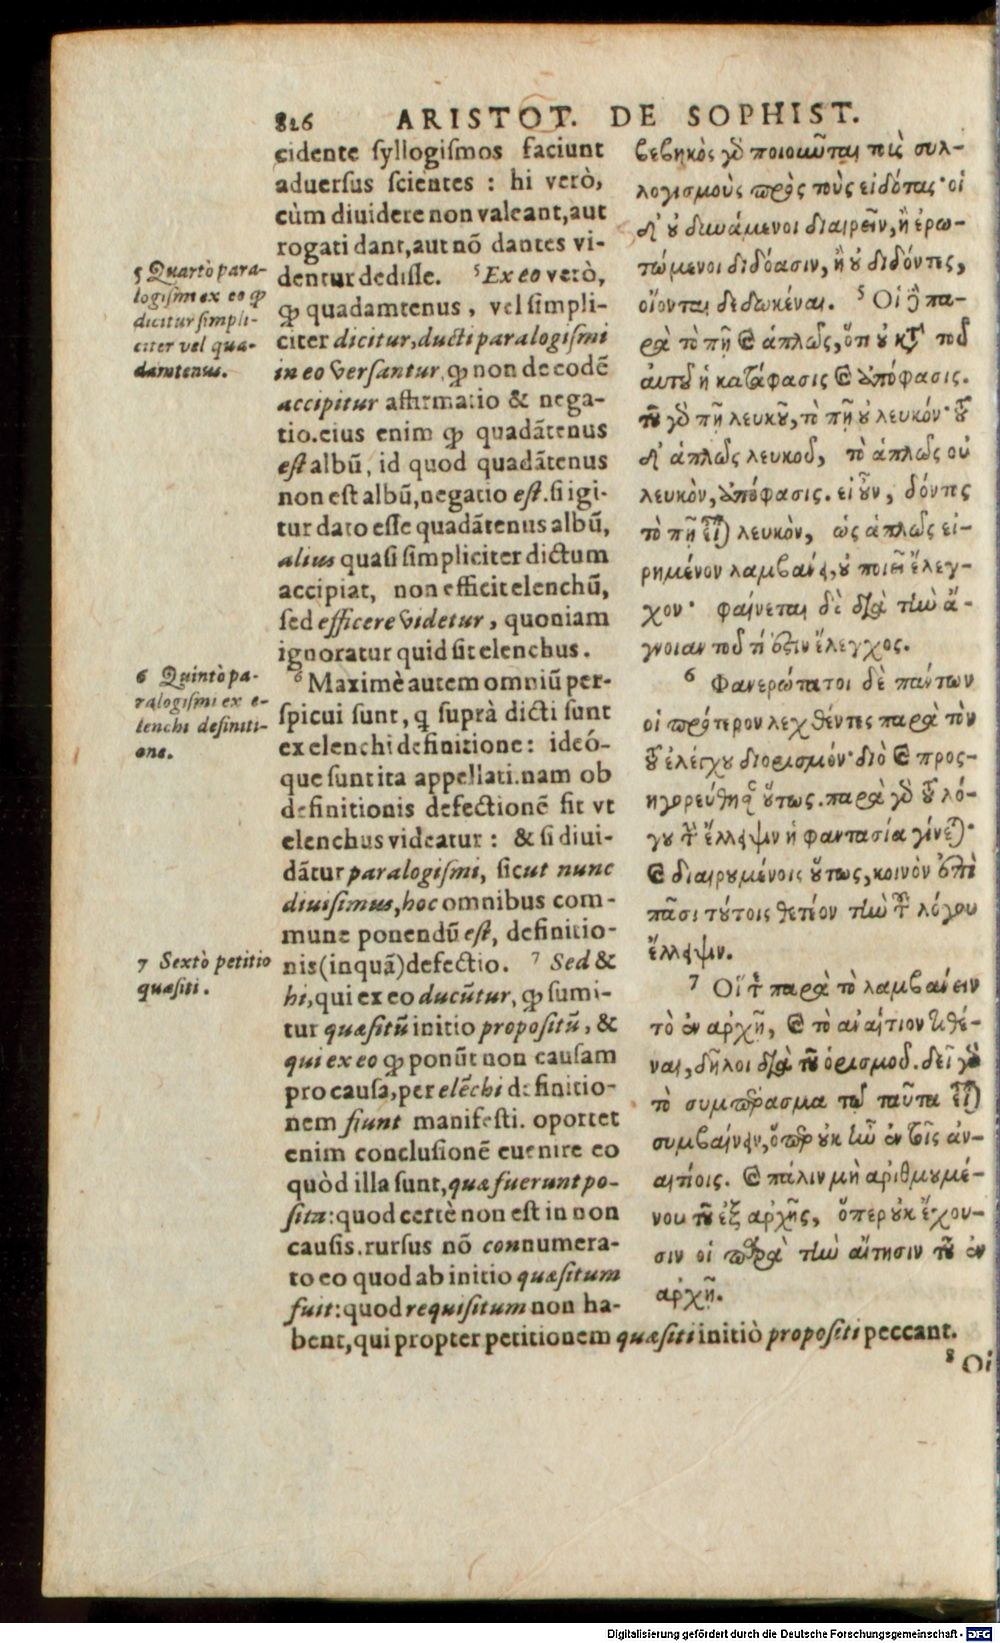 826 ARISTOT. DE SOPHIST.
cidente syllogismos faciunt
aduersus scientes : hi verò,
cùm diuidere non valeant, aut
rogati dant, aut nõ dantes vi-
dentur dedisse. ⁵ Ex eo verò,
ꝙ quadamtenus, vel simpli-
citer dicitur, ducti paralogismi
in eo versantur, ꝙ non de eodẽ
accipitur affirmatio & nega-
tio. eius enim ꝙ quadãtenus
est albũ, id quod quadãtenus
non est albũ, negatio est. si igi-
tur dato esse quadãtenus albũ,
alius quasi simpliciter dictum
accipiat, non efficit elenchũ,
sed efficere videtur, quoniam
ignoratur quid sit elenchus.
⁶ Maximè autem omniũ per-
spicui sunt, q̃ suprà dicti sunt
ex elenchi definitione: ideó-
que sunt ita appellati. nam ob
definitionis defectionẽ fit vt
elenchus videatur : & si diui-
dãtur paralogismi, sicut nunc
diuisimus, hoc omnibus com-
mune ponendũ est, definitio-
nis (inquã) defectio. ⁷ Sed &
hi, qui ex eo ducũtur, ꝙ sumi-
tur quæsitũ initio propositũ, &
qui ex eo ꝙ ponũt non causam
pro causa, per elẽchi definitio-
nem fiunt manifesti. oportet
enim conclusionẽ euenire eo
quòd illa sunt, quæ fuerunt po-
sita: quod certè non est in non
causis. rursus nõ connumera-
to eo quod ab initio quæsitum
fuit: quod requisitum non ha-
bent, qui propter petitionem quæsiti initiò propositi peccant.
5 Quartò para-
logismi ex eo ꝙ
dicitur simpli-
citer vel qua-
damtenus.
6 Quintò pa-
ralogismi ex e-
lenchi definiti-
one.
7 Sextò petitio
quæsiti.
βεβηκὸς γὸ ποιοιῦται τοὺς συλ-
λογισμοὺς πρὸς τοὺς εἰδότας· οἱ
δ' ȣ δυνάμενοι διαιρεῖν, ἢ ἐρω-
τώμενοι διδόασιν, ἢ ȣ διδόντες,
οἴονται δεδωκέναι. ⁵ Οἱ ἢ πα-
ρὰ τὸ πῆ ϗ ἁπλῶς, ὅτι ȣ κτ' τοῦ
αὐτȣ ἡ κατάφασις ϗ ἀπόφασις.
τοῦ γὸ πῆ λευκοῦ, τὸ πῆ ȣ λευκόν· τȣ
δ' ἁπλῶς λευκοῦ, τὸ ἁπλῶς οὐ
λευκὸν, ἀπόφασις. εἰ οὖν, δόντος
τὸ πῆ εἶναι λευκὸν, ὡς ἁπλῶς εἰ-
ρημένον λαμβάνει, ȣ ποιεῖ ἔλεγ-
χον· φαίνεται δὲ διὰ τὴν ἄ-
γνοιαν τοῦ τί ἐστιν ἔλεγχος.
⁶ Φανερώτατοι δὲ πάντων
οἱ πρότερον λεχθέντες παρὰ τὸν
τȣ ἐλέγχȣ διορισμόν· διὸ ϗ προς-
ηγορεύθησαν ȣτως. παρὰ γὸ τȣ λό-
γȣ τὴν ἔλλειψιν ἡ φαντασία γίνεται·
ϗ διαιρȣμένοις ȣτως, κοινὸν ἐπὶ
πᾶσι τȣτοις θετέον τὴν τȣ λόγου
ἔλλειψιν.
⁷ Οἵ τε παρὰ τὸ λαμβάνειν
τὸ ἐν ἀρχῇ, ϗ τὸ ἀναίτιον τιθέ-
ναι, δῆλοι διὰ τοῦ ὁρισμοῦ. δεῖ γὸ
τὸ συμπέρασμα τῷ ταῦτα εἶναι
συμβαίνειν, ὅπερ ȣκ ἦν ἐν τοῖς ἀν-
αιτίοις. ϗ πάλιν μὴ ἀριθμȣμέ-
νου τοῦ ἐξ ἀρχῆς, ὅπερ ȣκ ἔχου-
σιν οἱ παρὰ τὴν αἴτησιν τοῦ ἐν
ἀρχῇ.
⁸ Οἱ
Digitalisierung gefördert durch die Deutsche Forschungsgemeinschaft - DFG